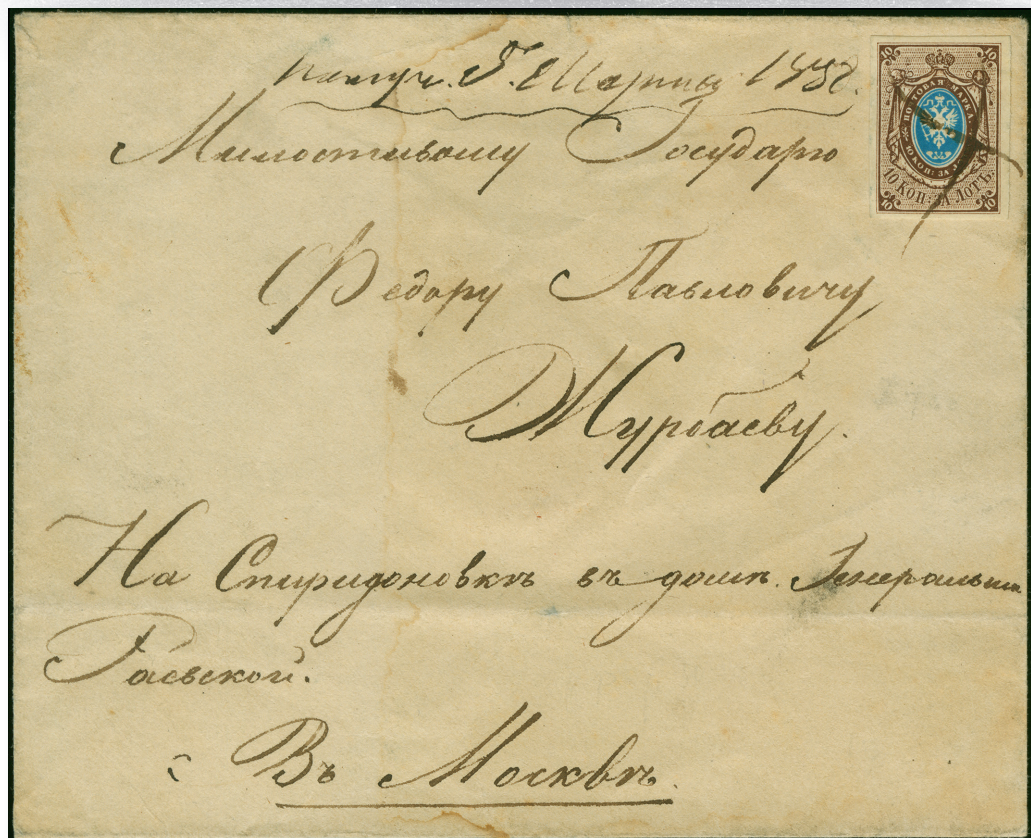 Получ. 5. Марта 1858.
Милостивому Государю
Федору Павловичу
Журбаеву.
На Спиридоновкѣ въ домѣ. Генеральши
Раевской.
Въ Москвѣ.
10 10
ПОЧТОВАЯ МАРКА
10 КОП: ЗА
10 КОП: ЗА ЛОТЪ.
10 10